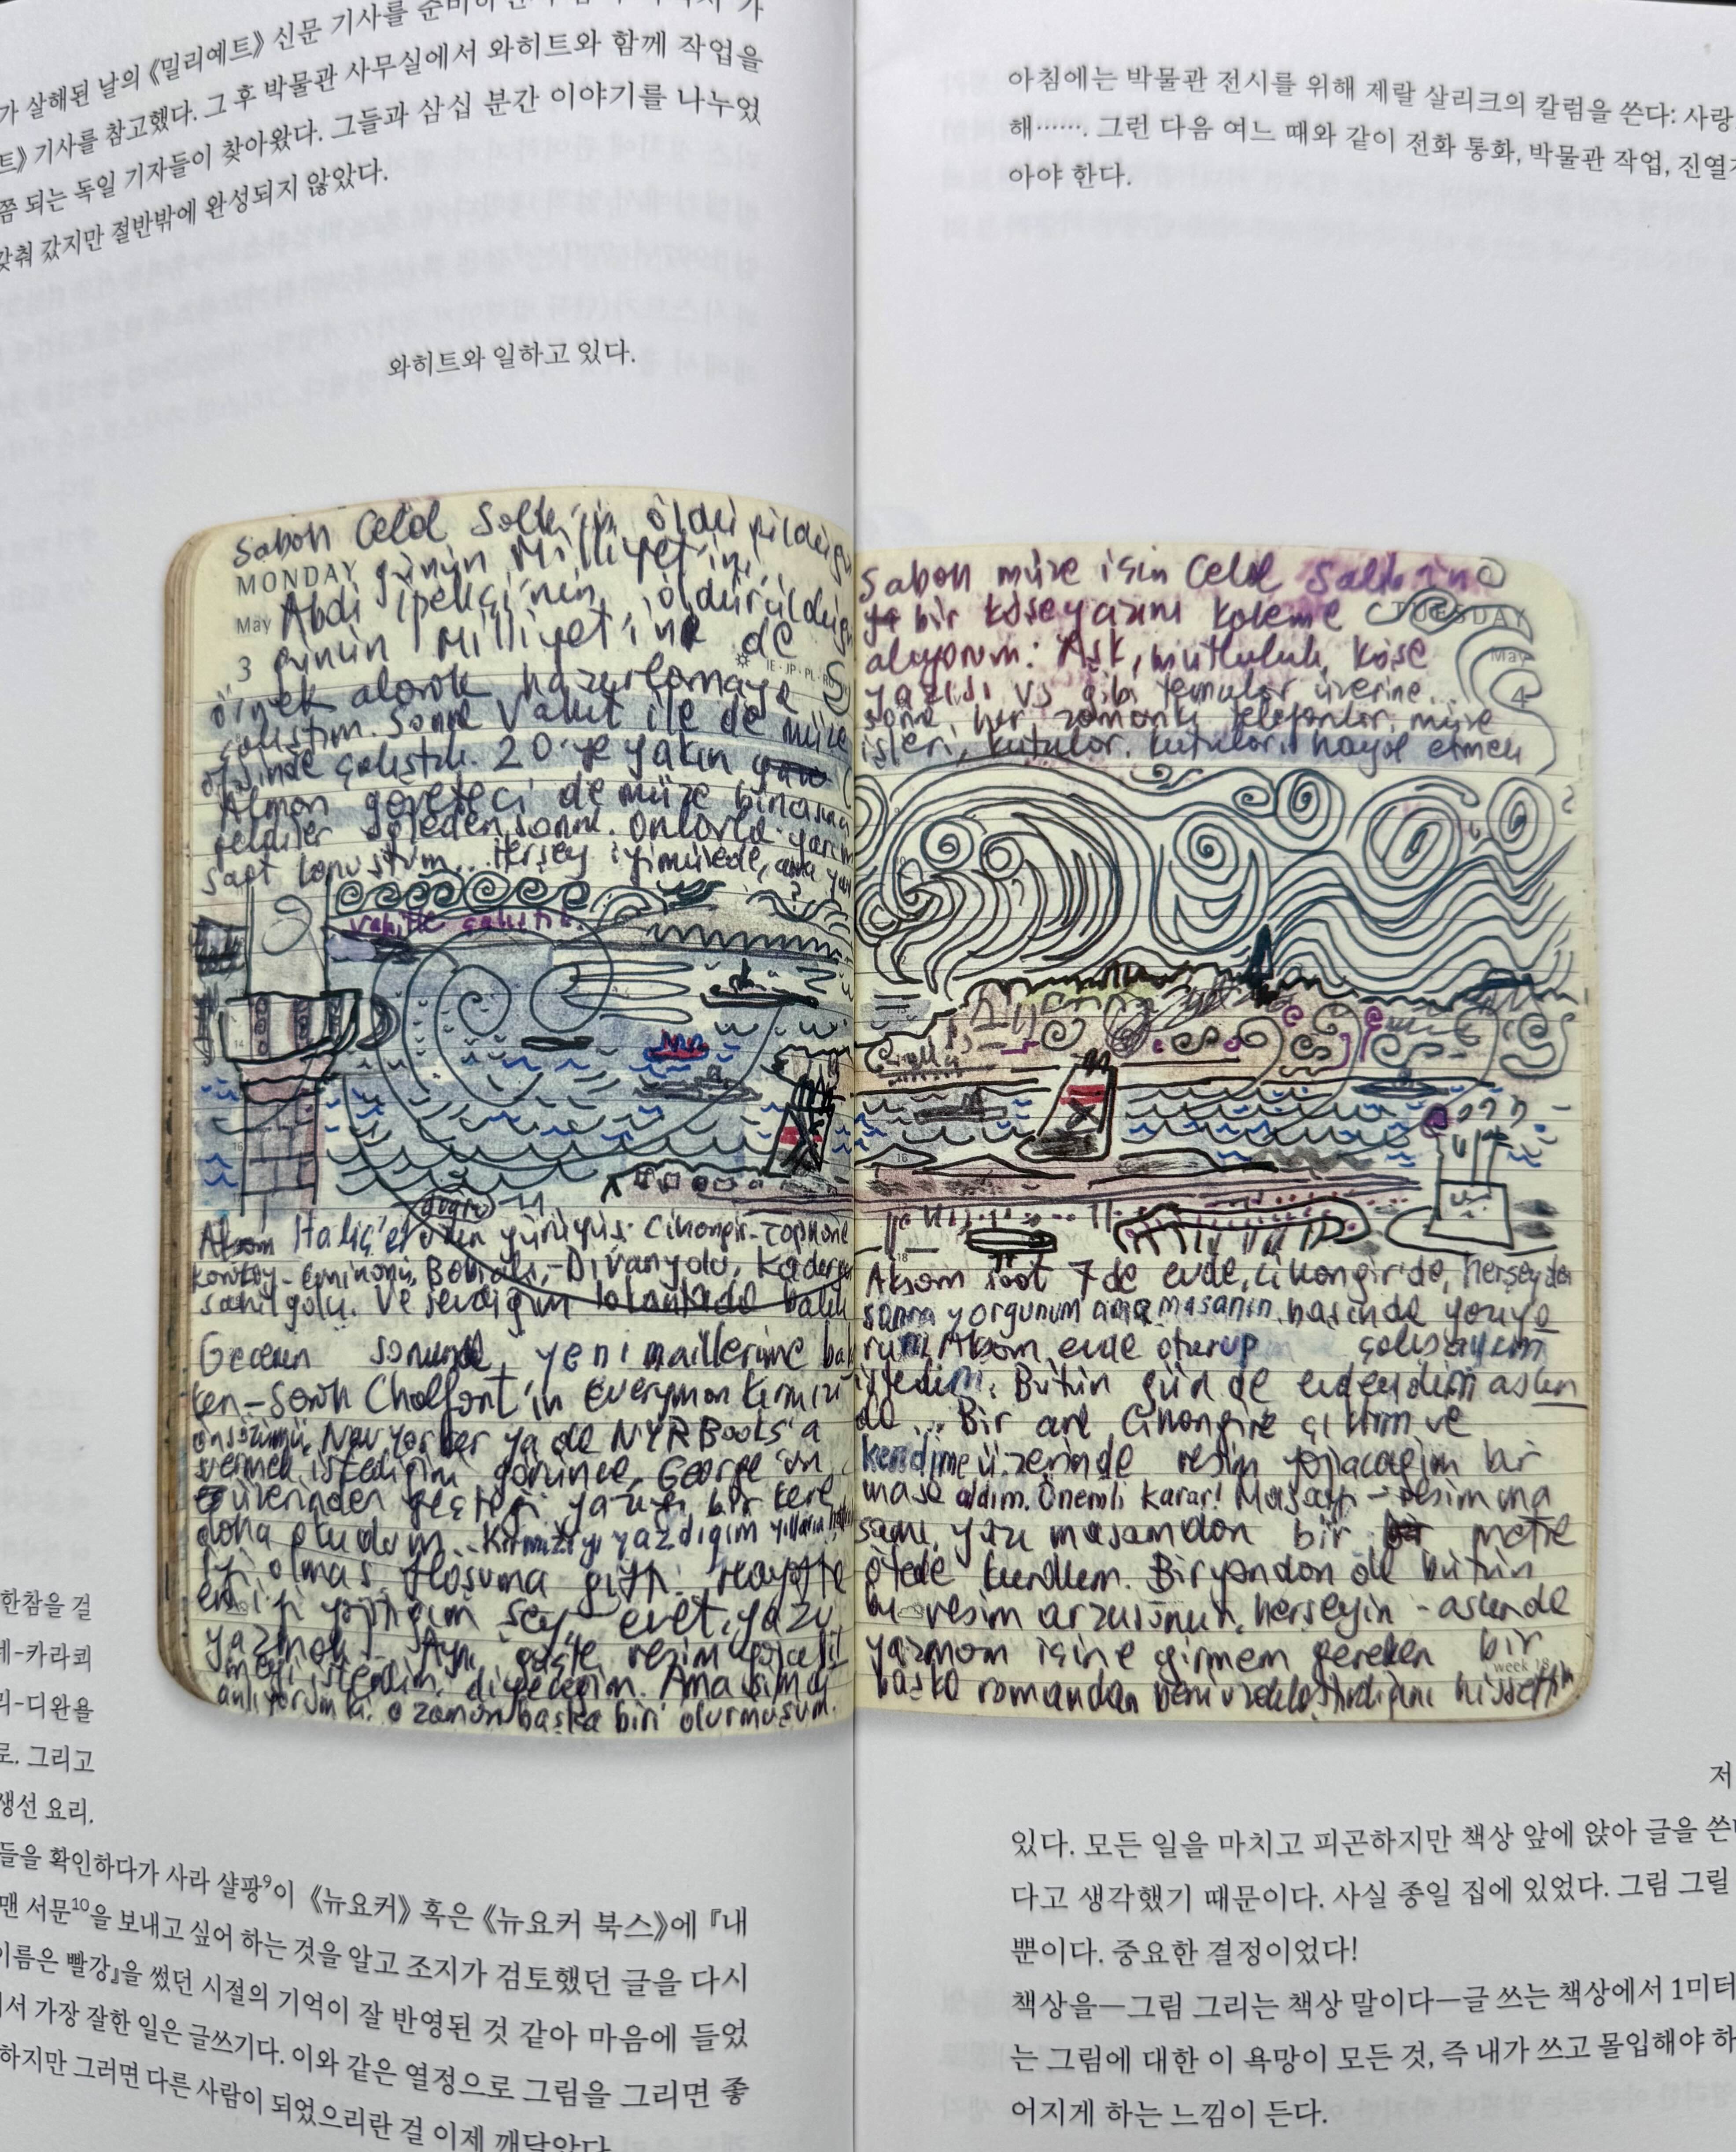 가 살해된 날의 《밀리예트》 신문 기사를
트》 기사를 참고했다. 그 후 박물관 사무실에서 와히트와 함께 작업을
쯤 되는 독일 기자들이 찾아왔다. 그들과 삼십 분간 이야기를 나누었
갖춰 갔지만 절반밖에 완성되지 않았다.
와히트와 일하고 있다.
Sabah Celâl Salik'in öldürüldüğü
MONDAY
günün Milliyet'ini
May
Abdi İpekçi'nin öldürüldüğü
3
günün Milliyet'ini de
IE · JP · PL
örnek alarak hazırlamaya
çalıştım. Sonra Vahit ile de müze
ofisinde çalıştık. 20'ye yakın
Alman gazeteci de müze binasına
geldiler öğleden sonra. Onlarla yarım
saat konuştum... Herşey iyi müzede, ama
Vahitle çalıştık.
doğru
Akşam Haliç'e yürüyüş: Cihangir-Tophane
Karaköy-Eminönü, Babıali,-Divanyolu, Kadırga
sahil yolu. Ve sevdiğim lokantada balık
Gecenin sonunda, yeni maillerime bak
ken-Sarah Chalfant'ın Everyman Kırmızı
önsözünü, New Yorker ya da NYRBooks'a
vermek istediğini görünce, George'un
üzerinden geçtiği yazıyı bir kere
daha okudum... Kırmızıyı yazdığım yılların
iyi olması hoşuma gitti. Hayatta
en iyi yaptığım şey, evet, yazı
yazmak. Aynı güçle resim yapabil
meyi isterdim, diyeceğim. Ama şimdi
anlıyorum ki o zaman başka biri olurmuşum.
한참을 걸
네-카라쾨
리-디완욜
로. 그리고
생선 요리.
들을 확인하다가 사라 샬팡⁹이 《뉴요커》 혹은 《뉴요커 북스》에 『내
맨 서문¹⁰을 보내고 싶어 하는 것을 알고 조지가 검토했던 글을 다시
이름은 빨강』을 썼던 시절의 기억이 잘 반영된 것 같아 마음에 들었
에서 가장 잘한 일은 글쓰기다. 이와 같은 열정으로 그림을 그리면 좋
하지만 그러면 다른 사람이 되었으리란 걸 이제 깨달았다.
아침에는 박물관 전시를 위해 제랄 살리크의 칼럼을 쓴다: 사랑
해……. 그런 다음 여느 때와 같이 전화 통화, 박물관 작업, 진열
아야 한다.
Sabah müze için Celâl Salik'in
bir köşe yazısını kaleme
TUESDAY
alıyorum: Aşk, mutluluk, köşe
May
yazısı vs gibi temalar üzerine..
4
sonra, her zamanki telefonlar, müze
işleri, kutular, kutuları hayal etmek
Akşam saat 7'de evde, Cihangir'de, herşeyden
sonra yorgunum ama masanın başında yazıyo
rum. Akşam evde oturup çalışayım
istedim. Bütün gün de evdeydim aslın
da... Bir ara Cihangire çıktım ve
kendime üzerinde resim yapacağım bir
masa aldım. Önemli karar! Masayı - resim ma
sası, yazı masamdan bir metre
ötede kurdum. Bir yandan da bütün
bu resim arzusunun, herşeyin - aslında
yazmam içine girmem gereken bir
week 18
başka romandan beni uzaklaştırdığını hissettim
저
있다. 모든 일을 마치고 피곤하지만 책상 앞에 앉아 글을 쓴
다고 생각했기 때문이다. 사실 종일 집에 있었다. 그림 그릴
뿐이다. 중요한 결정이었다!
책상을—그림 그리는 책상 말이다—글 쓰는 책상에서 1미터
는 그림에 대한 이 욕망이 모든 것, 즉 내가 쓰고 몰입해야 하
어지게 하는 느낌이 든다.